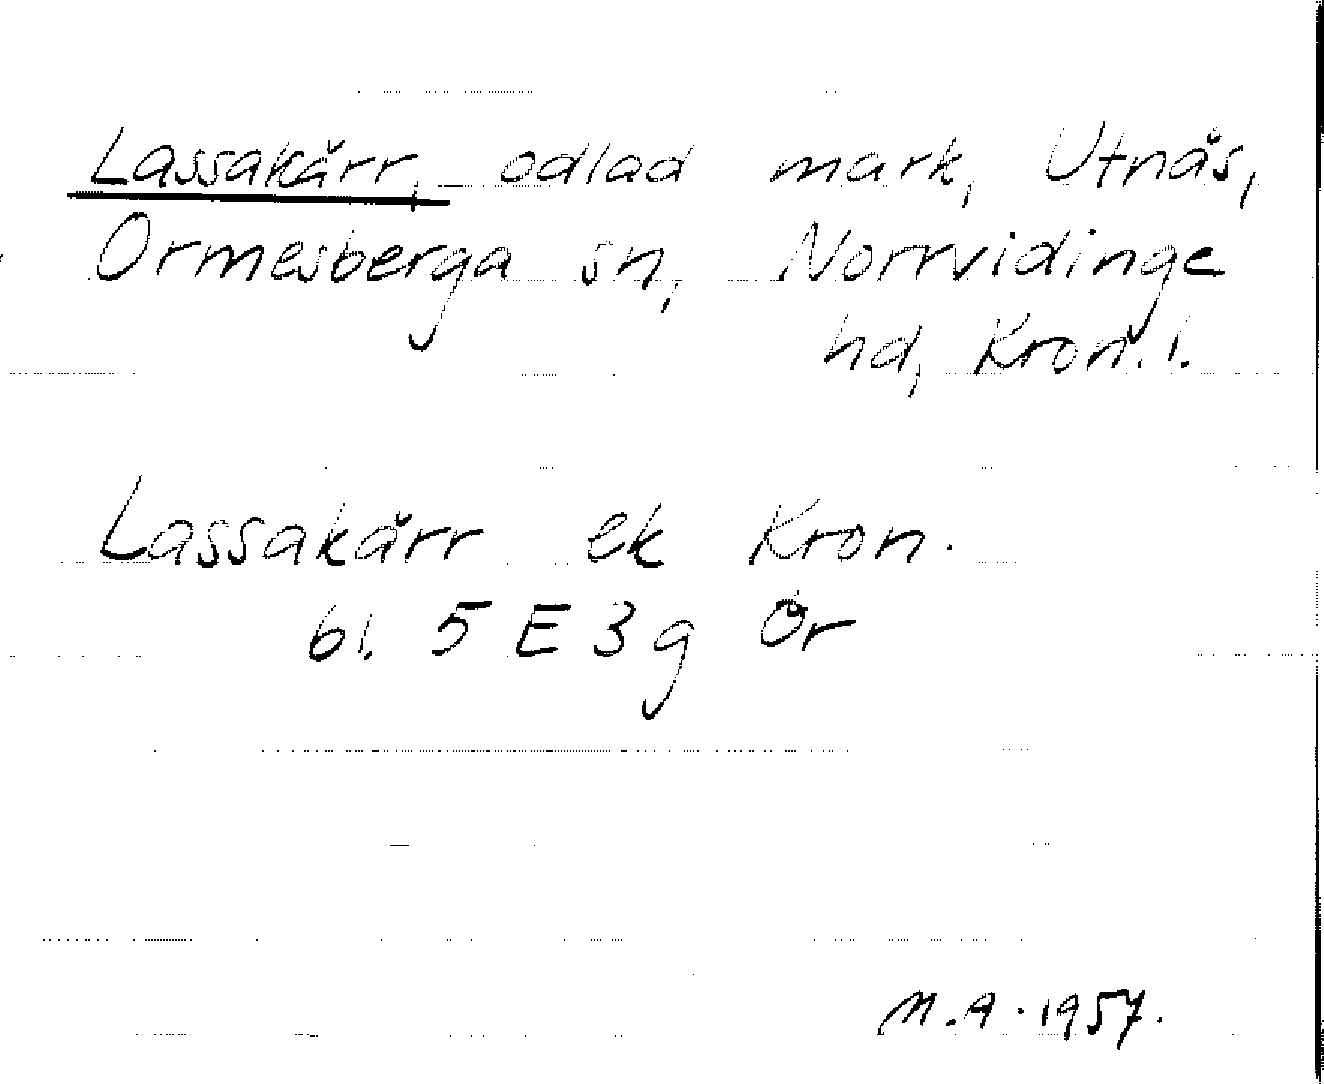 Lassakärr, odlad mark, Utnäs,
Ormesberga sn, Norrvidinge
hd, Kron. l.
Lassakärr ek Kron.
bl. 5 E 3 g Ör
M.A. 1957.